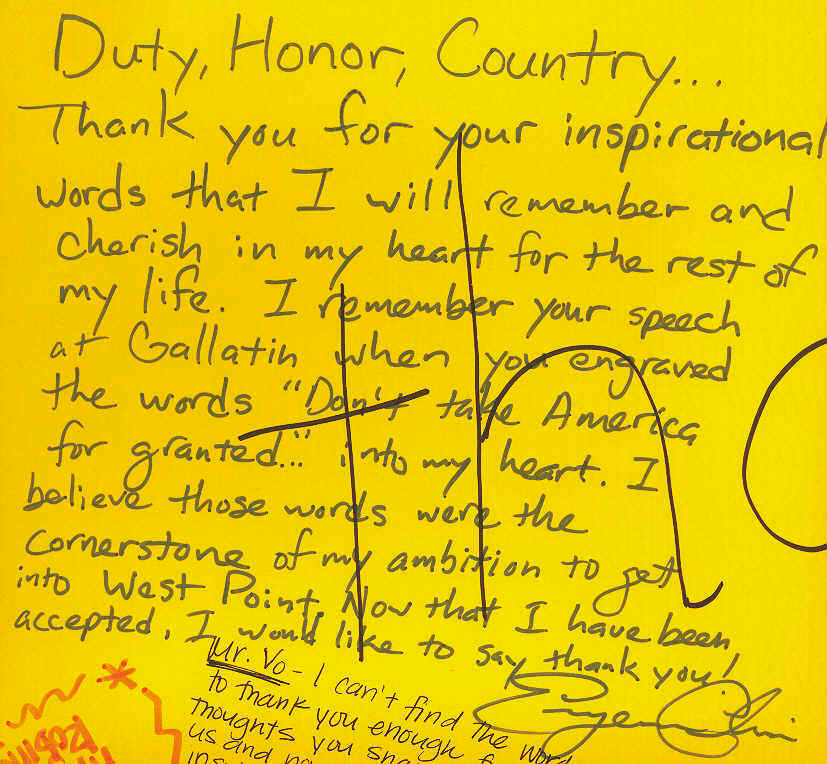 Duty, Honor, Country...
Thank you for your inspirational
words that I will remember and
cherish in my heart for the rest of
my life. I remember your speech
at Gallatin when you engraved
the words "Don't take America
for granted..." into my heart. I
believe those words were the
cornerstone of my ambition to get
into West Point. Now that I have been
accepted, I would like to say thank you!
Mr. Vo - I can't find the word
to thank you enough f
thoughts you sha
us and